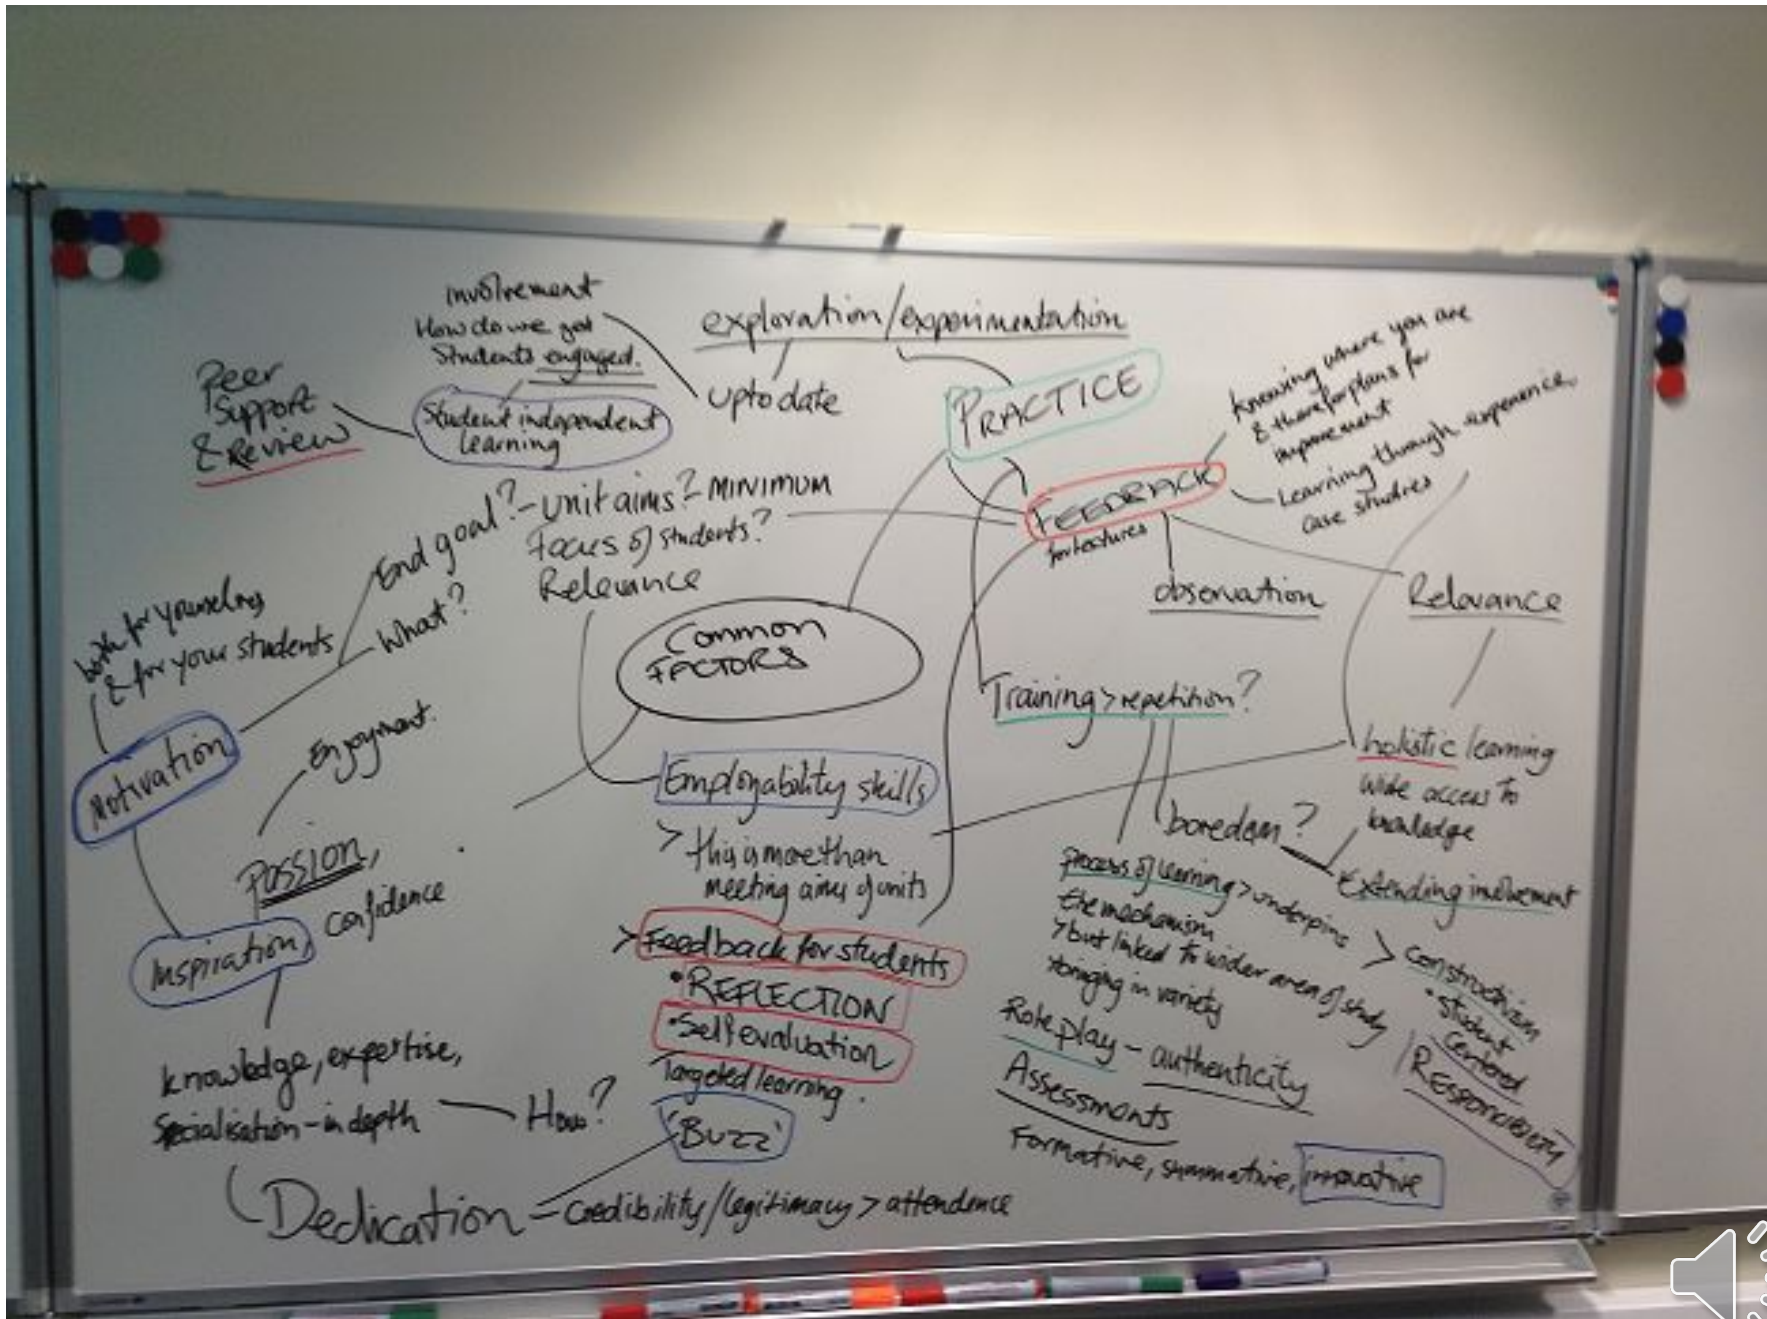 involvement
How do we get
Students engaged.
exploration/experimentation
Peer
Support
& Review
Student independent
learning
up to date
PRACTICE
knowing where you are
& therefor plans for
improvement
Learning through experience,
case studies
FEEDBACK
for lectures
End goal? - unit aims? - MINIMUM
Focus of students?
Relevance
What?
observation
Relevance
both for yourselves
& for your students
Common
FACTORS
Motivation
Enjoyment.
Training > repetition?
Employability skills
> this is more than
meeting aims of units
holistic learning
wide access to
knowledge
boredom?
Extending involvement
Passion,
confidence
Inspiration,
> Feedback for students
• REFLECTION
• Self evaluation
Targeted learning.
'Buzz'
process of learning > underpins
the mechanism
> but linked to wider area of study
> bringing in variety
> constructivism
• Student
Centered
RESPONSIBILITY
Role play - authenticity
Assessments
Formative, summative, innovative
knowledge, expertise,
Specialisation - in depth
How?
Dedication = credibility/legitimacy > attendence